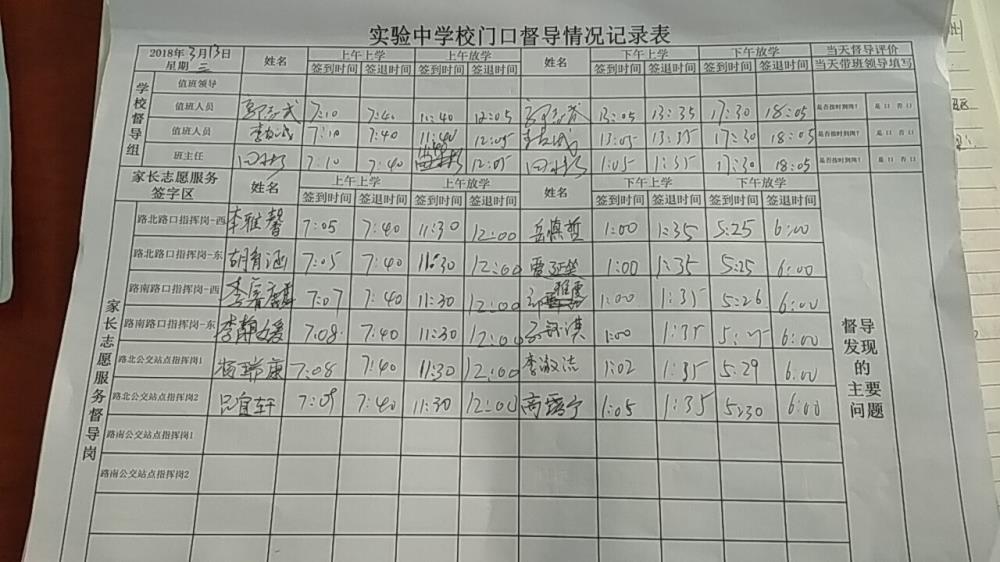 实验中学校门口督导情况记录表
2018年3月13日 星期 三 姓名 上午上学 上午放学 姓名 下午上学 下午放学 当天督导评价
签到时间 签退时间 签到时间 签退时间 签到时间 签退时间 签到时间 签退时间 当天带班领导填写
学校督导组
值班领导
值班人员 7:10 7:40 11:40 12:05 13:05 13:35 17:30 18:05 是否按时到岗? 是口 否口
值班人员 7:10 7:40 11:40 12:05 13:05 13:35 17:30 18:05 是否按时到岗? 是口 否口
班主任 7:10 7:40 12:05 1:05 1:35 17:30 18:05 是否按时到岗? 是口 否口
家长志愿服务签字区 姓名 上午上学 上午放学 姓名 下午上学 下午放学
签到时间 签退时间 签到时间 签退时间 签到时间 签退时间 签到时间 签退时间
家长志愿服务督导岗
路北路口指挥岗-西 李雅馨 7:05 7:40 11:30 12:00 1:00 1:35 5:25 6:00
路北路口指挥岗-东 7:05 7:40 11:30 12:00 1:00 1:35 5:25 6:00
路南路口指挥岗-西 7:07 7:40 11:30 12:00 1:00 1:35 5:26 6:00
路南路口指挥岗-东 李静媛 7:08 7:40 11:30 12:00 1:00 1:35 6:00
路北公交站点指挥岗1 杨瑞康 7:08 7:40 11:30 12:00 李淑洁 1:02 1:35 5:29 6:00
路北公交站点指挥岗2 吕宜轩 7:09 7:40 11:30 12:00 1:05 1:35 5:30 6:00
路南公交站点指挥岗1
路南公交站点指挥岗2
督导
发现
的
主要
问题